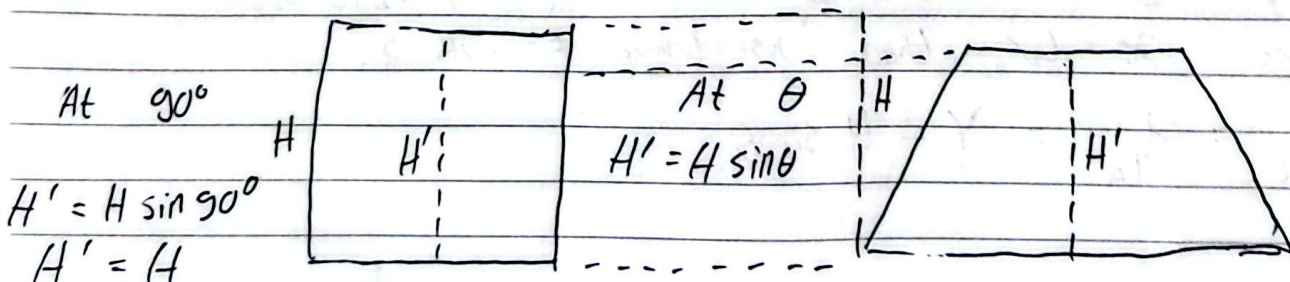 At 90°
H
H'
H' = H sin 90°
H' = H
At θ
H' = H sinθ
H
H'